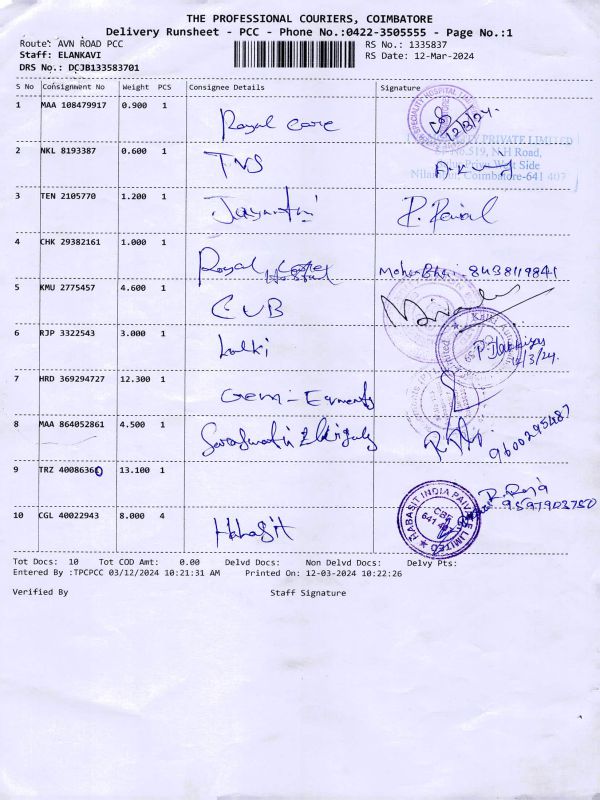 THE PROFESSIONAL COURIERS, COIMBATORE
Delivery Runsheet - PCC - Phone No.:0422-3505555 - Page No.:1
Route: AVN ROAD PCC RS No.: 1335837
Staff: ELANKAVI RS Date: 12-Mar-2024
DRS No.: DCJB133583701
S No Consignment No Weight PCS Consignee Details Signature
1 MAA 108479917 0.900 1 Royal care 12/3/24.
SPECIALITY HOSPITAL
PRIVATE LIMITED
2 NKL 8193387 0.600 1 TNS
No.519, NH Road,
West Side
Coimbatore-641 407
3 TEN 2105770 1.200 1 Jayanthi
4 CHK 29382161 1.000 1 Royal Care 8438119841
Hospital
5 KMU 2775457 4.600 1 CUB
6 RJP 3322543 3.000 1 Kalki
12/3/24.
7 HRD 369294727 12.300 1 Gem-Eqments
8 MAA 864052861 4.500 1 9600295487
9 TRZ 40086360 13.100 1 R. Raja
9597903750
10 CGL 40022943 8.000 4 Habasit
HABASIT INDIA PRIVATE LIMITED
CBE
Tot Docs: 10 Tot COD Amt: 0.00 Delvd Docs: Non Delvd Docs: Delvy Pts:
Entered By :TPCPCC 03/12/2024 10:21:31 AM Printed On: 12-03-2024 10:22:26
Verified By Staff Signature